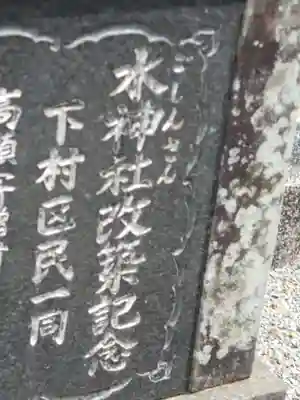 ごしんさん
水神社改築記念
下村区民一同